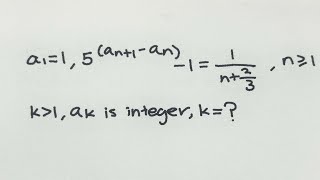 a₁=1, 5^(aₙ₊₁-aₙ) -1 = 1/(n+2/3), n≥1
k>1, aₖ is integer, k=?